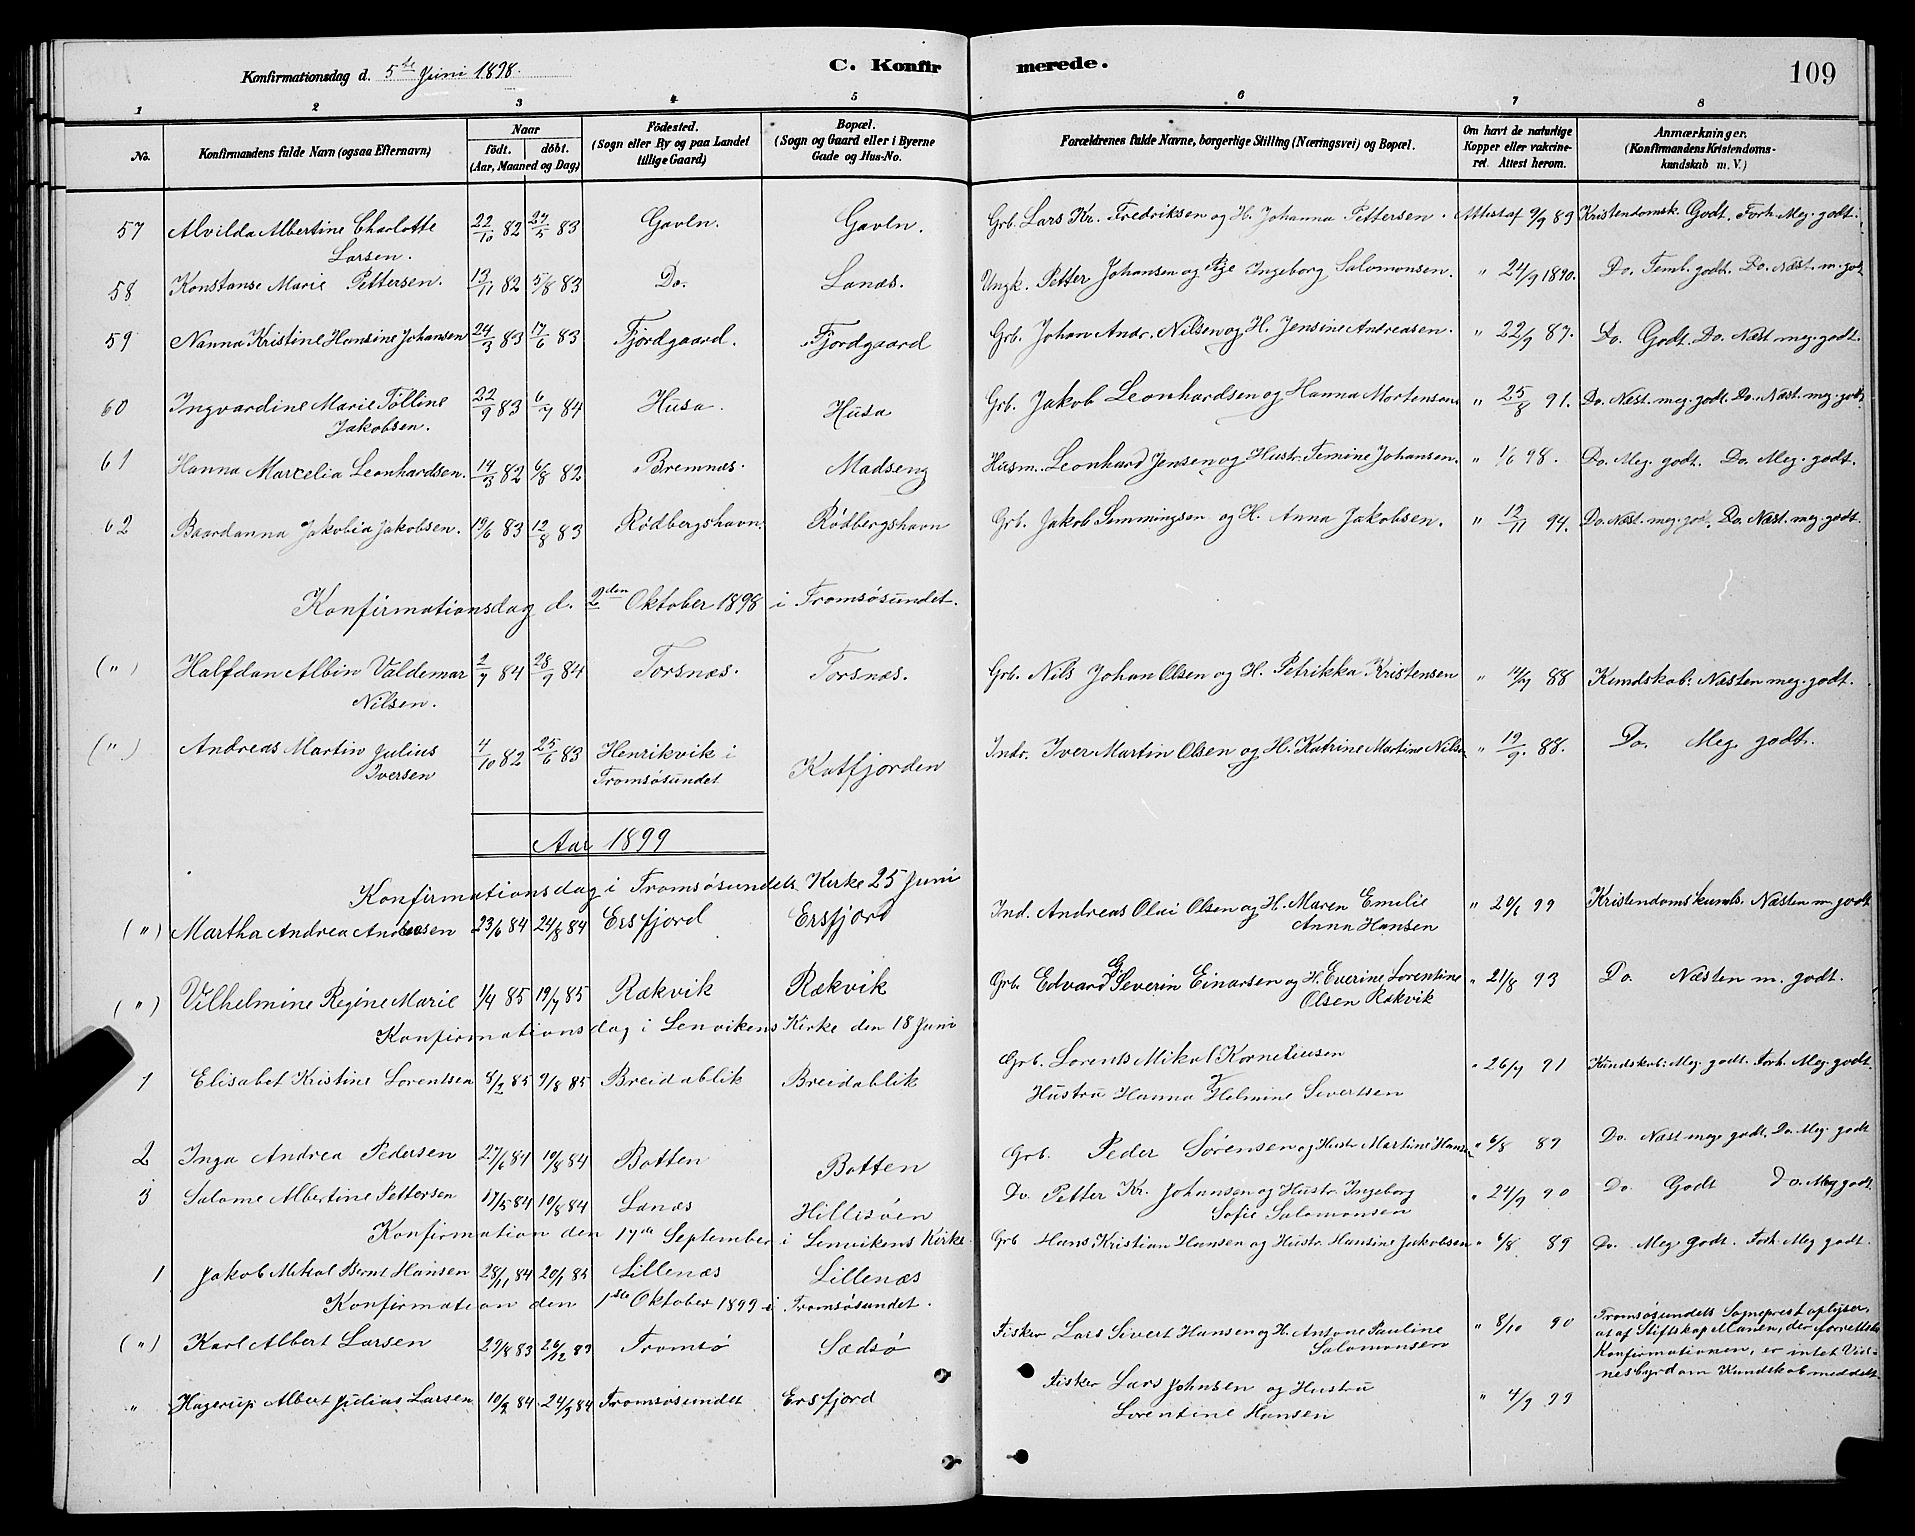 Konfirmationsdag d. 5te Juni 1898. C. Konfirmerede. 109
1 2 3 4 5 6 7 8
No. Konfirmandens fulde Navn (ogsaa Efternavn) Naar födt. döbt. (Aar, Maaned og Dag) Födested. (Sogn eller By og paa Landet tillige Gaard) Bopæl. (Sogn og Gaard eller i Byerne Gade og Hus-No.) Forældrenes fulde Navne, borgerlige Stilling (Næringsvei) og Bopæl. Om havt de naturlige Kopper eller vakcineret. Attest herom. Anmærkninger. (Konfirmandens Kristendomskundskab m. V.)
57 Alvilda Albertine Charlotte Larsen. 22/10 82 27/5 83 Gavln. Gavln. Grb. Lars Kr. Fredriksen og H. Johanna Pettersen. Attest af 9/9 89 Kristendomsk. Godt. Forh. Meg. godt.
58 Konstanse Marie Pettersen. 13/11 82 5/8 83 Do. Lanæs. Ungk. Petter Johansen og Pige Ingeborg Salomonsen. " 24/9 1890. Do. Teml. godt. Do. Næst. m. godt
59 Nanna Kristine Hansine Johansen 24/3 83 17/6 83 Fjordgaard. Fjordgaard Grb. Johan Andr. Nilsen og H. Jensine Andreasen. " 22/9 87. Do. Godt. Do. Næst meg. godt.
60 Ingvardine Marie Tølline Jakobsen. 22/9 83 6/7 84 Husa. Husa Grb. Jakob Leonhardsen og Hanna Mortensen " 25/8 91. Do. Næst. meg. godt. Do. Næst. meg. godt.
61 Hanna Marcelia Leonhardsen. 14/3 82 6/8 82 Bremnæs. Madseng Husm. Leonhard Jensen og Hustr. Temine Johansen. " 1/6 98. Do. Meg. godt. Do. Meg. godt.
62 Baardanna Jakobia Jakobsen. 19/6 83 12/8 83 Rødbergshavn. Rødbergshavn Grb. Jakob Simmingsen og H. Anna Jakobsen. " 12/11 94. Do. Næst. meg. godt. Do. Næst. meg. godt.
Konfirmationsdag d. 2den Oktober 1898 i Tromsøsundet.
(") Halfdan Albin Valdemar Nilsen. 2/7 84 28/9 84 Torsnæs. Torsnæs. Grb. Nils Johan Olsen og H. Petrikka Kristensen " 14/9 88 Kundskab: Næsten meg. godt.
(") Andreas Martin Julius Iversen 4/10 82 25/6 83 Henrikvik i Tromsøsundet Katfjorden Indr. Iver Martin Olsen og H. Katrine Martine Nilsen " 19/9 88. Do. Meg godt.
Aar 1899
Konfirmationsdag i Tromsøsundets Kirke 25 Juni
(") Martha Andrea Andersen 23/6 84 24/8 84 Ersfjord Ersfjord Ind. Andreas Olai Olsen og H. Maren Emilie Anna Hansen " 20/6 99 Kristendomskunds. Næsten m. godt
(") Vilhelmine Regine Marie 1/4 85 19/7 85 Rækvik Rækvik Grb. Edvard G Severin Einarsen og H. Everine Lorentine Olsen Rækvik " 21/8 93 Do. Næsten m. godt.
Konfirmationsdag i Lenvikens Kirke den 18 Juni
1 Elisabet Kristine Lorentsen 8/2 85 9/8 85 Breidablik Breidablik Grb. Lorents Mikal Korneliusen Hustru Hanna Helmine Sivertsen " 26/9 91 Kundskab: Meg. godt. Forh. Meg. godt.
2 Inga Andrea Pedersen 27/6 84 10/8 84 Botten Botten Grb. Peder Sørensen og Hustr Martine Hansen " 6/8 89 Do. Næst meg. godt. Do. Meg. godt
3 Salome Albertine Pettersen 17/5 84 10/8 84 Lanæs Hillisøen Do. Petter Kr. Johansen og Hustr. Ingeborg Sofie Salomonsen " 24/9 90 Do. Godt Do. Meg godt.
Konfirmation den 17de September i Lenvikens Kirke
1 Jakob Mikal Bernt Hansen 28/11 84 20/1 85 Lillenæs Lillenæs Grb Hans Kristian Hansen og Hustr. Hansine Jakobsen " 6/8 89 Do. Meg godt. Forh. Meg godt.
Konfirmation den 1ste Oktober 1899 i Tromsøsundet.
(") Karl Albert Larsen 29/8 83 26/12 83 Tromsø Sædsø Fisker Lars Sivert Hansen og H. Antone Pauline Salomonsen " 8/10 90 Tromsøsundets Sogneprest oplyser, at af Stiftskap Manen, der forrettede Konfirmationen, er intet Vidnesbyrd om Kundskab meddelt
" Hagerup Albert Julius Larsen 10/2 84 24/9 84 Tromsøsundet Ersfjord Fisker Lars Johnsen og Hustru Lorentine Hansen " 4/9 99